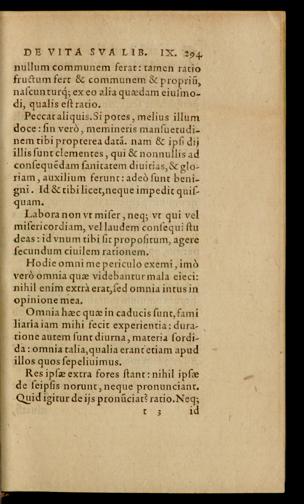 DE VITA SVA LIB. IX. 294
nullum communem ferat: tamen ratio
fructum fert & communem & propriũ,
nascunturq; ex eo alia quædam eiusmo-
di, qualis est ratio.
Peccat aliquis. Si potes, melius illum
doce: sin verò, memineris mansuetudi-
nem tibi propterea datã. nam & ipsi dij
illis sunt clementes, qui & nonnullis ad
consequẽdam sanitatem diuitias, & glo-
riam, auxilium ferunt: adeò sunt beni-
gni. Id & tibi licet, neque impedit quis-
quam.
Labora non vt miser, neq; vt qui vel
misericordiam, vel laudem consequi stu
deas: id vnum tibi sit propositum, agere
secundum ciuilem rationem.
Hodie omni me periculo exemi, imò
verò omnia quæ videbantur mala eieci:
nihil enim extrà erat, sed omnia intus in
opinione mea.
Omnia hæc quæ in caducis sunt, fami
liaria iam mihi fecit experientia: dura-
tione autem sunt diurna, materia sordi-
da: omnia talia, qualia erant etiam apud
illos quos sepeliuimus.
Res ipsæ extra fores stant: nihil ipsæ
de seipsis norunt, neque pronunciant.
Quid igitur de ijs pronũciat? ratio. Neq;
t 3 id